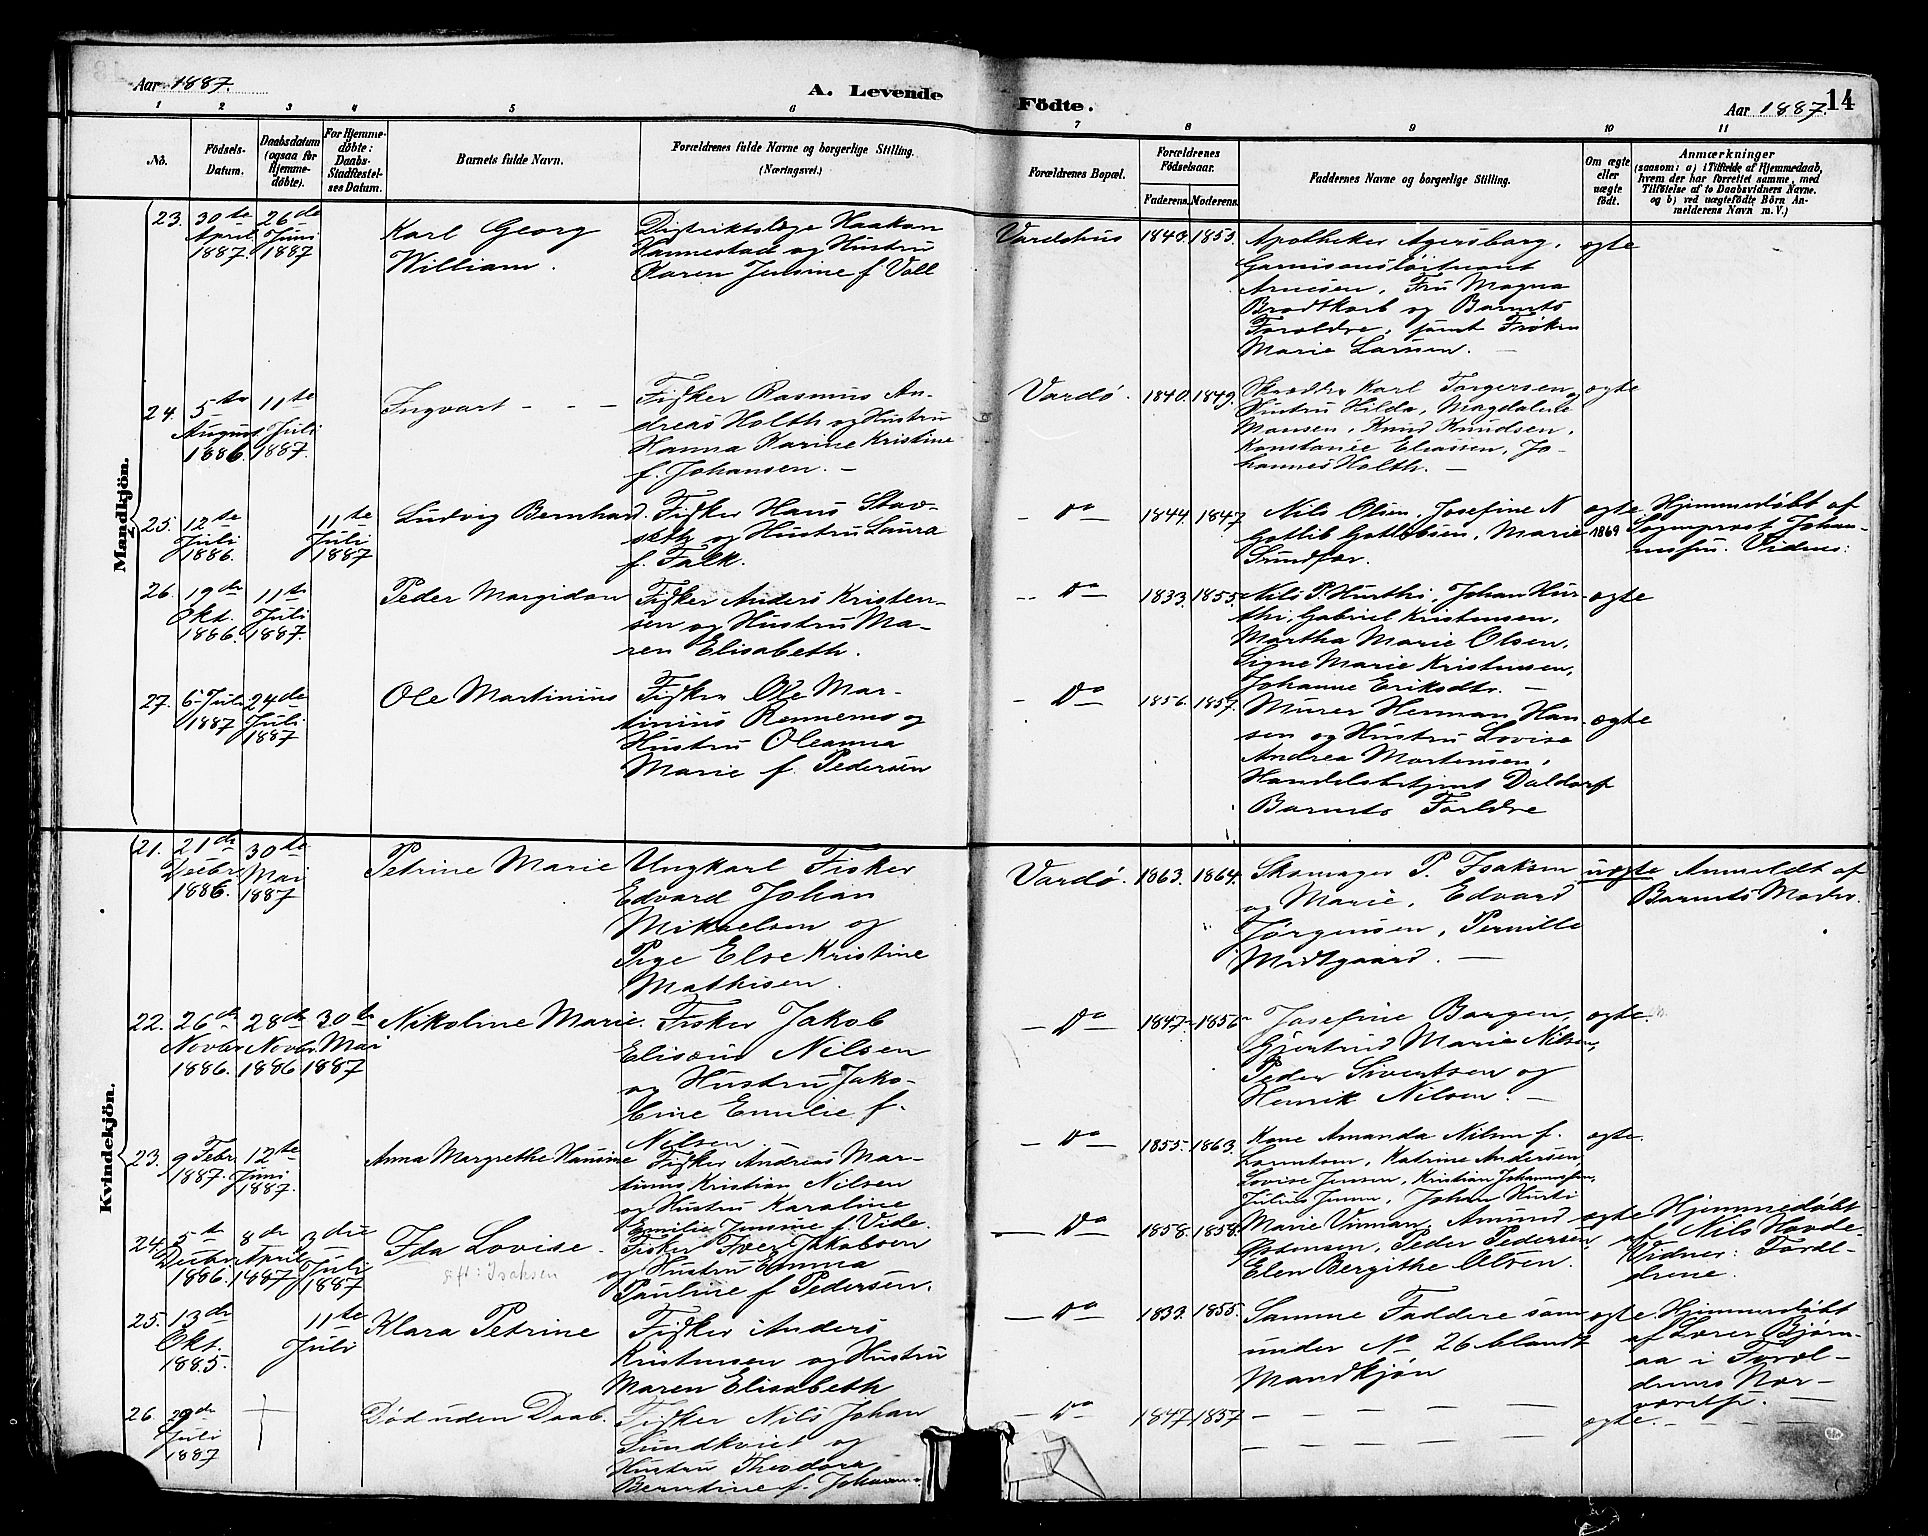 Aar 1887.
A. Levende Födte.
Aar 1887.
14
1 2 3 4 5 6 7 8 9 10 11
No.
Födsels-Datum.
Daabsdatum (ogsaa for Hjemme-döbte).
For Hjemme-döbte: Daabs-Stadfæstel-ses Datum.
Barnets fulde Navn.
Forældrenes fulde Navne og borgerlige Stilling. (Næringsvei.)
Forældrenes Bopæl.
Forældrenes Födselsaar.
Faderens.
Moderens.
Faddernes Navne og borgerlige Stilling.
Om ægte eller uægte födt.
Anmærkninger
(saasom: a) i Tilfælde af Hjemmedaab,
hvem der har forrettet samme, med
Tilföielse af to Daabsvidners Navne.
og b) ved uægtefödte Börn An-
melderens Navn m. V.)
Mandkjön.
23.
30te April 1887.
26de Juni 1887
Karl Georg
William.
Distriktslæge Haakon
Hannestad og Hustru
Karen Jensine f. Voll
Vardøhus
1840.
1853.
Apotheker Agersborg,
Garnisonsløitnant
Arnesen, Fru Magna
Brodtkorb og Barnets
Forældre, samt Frøken
Marie Larssen. —
ægte
24.
5te August 1886.
11te Juli 1887.
Ingvart - - -
Fisker Rasmus An-
dreas Holth og Hustru
Hanna Karine Kristine
f. Johansen. —
Vardø.
1840.
1849.
Karl Torgersen og
Hustru Hilda, Magdalene
Monsen, Knud Knudsen,
Konstanse Eliassen, Jo-
hannes Holth. —
ægte
25.
12te Juli 1886.
11te Juli 1887
Ludvig Bernhard.
Fisker Hans Stav-
sæth og Hustru Laura
f. Falk.
— Do —
1844.
1847
Nils Olsen, Josefine N
Gotlib Gotlibsen, Marie
Sundfær.
ægte
1869
Hjemmedøbt af
Sogneprest Johan-
nessen. Vidner:
26.
19de Okt. 1886.
11te Juli 1887.
Peder Margidon
Fisker Anders Kristen-
sen og Hustru Ma-
ren Elisabeth.
— Do —
1833.
1855.
Nils P. Hurthi, Johan Hur-
thi, Gabriel Kristensen,
Martha Marie Olsen,
Signe Marie Kristensen,
Johanne Eriksdtr. —
ægte
27.
6 Juli 1887
24de Juli 1887
Ole Martinius
Fisker Ole Mar-
tinius Rennemo og
Hustru Oleanna
Marie f. Pedersen
— Do —
1856.
1857.
Murer Herman Han-
sen og Hustru Lovise
Andrea Mortensen,
Handelsbetjent Daldorf
Barnets Forældre
ægte
Kvindekjön.
21.
21de Decbr 1886.
30te Mai 1887
Petrine Marie
Ungkarl Fisker
Edvard Johan
Mikaelsen og
Pige Else Kristine
Mathisen.
Vardø.
1863.
1864.
Skomager P. Isaksen
og Marie, Edvard
Jørgensen, Pernille
Midtgaard. —
uægte
Anmeldt af
Barnets Moder.
22.
26de Novbr 1886.
28de Novbr. 1886
30te Mai 1887
Nikoline Marie.
Fisker Jakob
Elisæus Nilsen
og Hustru Jako-
bine Emilie f.
Nilsen.
— Do —
1847
1856
Josefine Borgen,
Gjertrud Marie Nilsen,
Peder Sivertsen og
Henrik Nilsen. —
ægte.
23.
9 Febr 1887.
12te Juni 1887.
Anna Margrethe Hansine
Fisker Andreas Mar-
tinus Kristian Nilsen
og Hustru Karoline
Emilie Jensine f. Vide.
— Do —
1855.
1863.
Kone Amanda Nilsen f.
Lorentsen, Katrine Andersen
Lovise Jensen, Kristian Johannesen,
Julius Jensen, Johan Hurti
ægte.
24.
5te Decbr 1886.
8de April 1887
3die Juli 1887
Ida Lovise.
gift: Isaksen
Fisker Iver Jakobsen
og Hustru Emma
Pauline f. Pedersen.
— Do —
1858.
1858.
Marie Vinman, Amund
Peder Pedersen,
Elen Bergithe Olsen.
ægte
Hjemmedøbt
af Nils Hovde
Vidner: Foræl-
drene.
25.
13de Okt. 1885.
11te Juli
Klara Petrine
Fisker Anders
Kristensen og Hustru
Maren Elisabeth
— Do —
1833.
1855.
Samme Faddere som
under No 26 blandt
Mandkjøn
ægte.
Hjemmedøbt
af Lærer Bjørn-
aa i Foræl-
drenes Nær-
værelse.
26.
29de Juli 1887
†
Død uden Daab.
Fisker Nils Johan
Sundkvist og
Hustru Theodora
Berntine f. Johannes.
— Do —
1847
1857
— — — — —
ægte. —